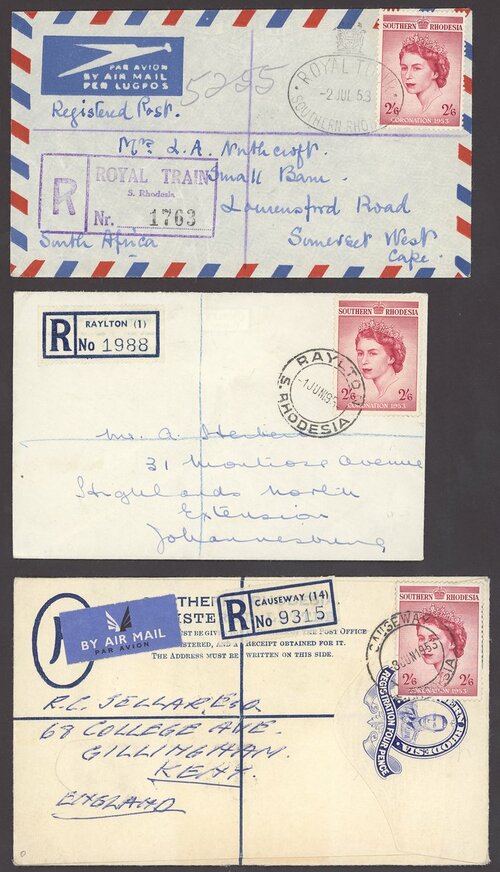 PAR AVION
BY AIR MAIL
PER LUGPOS
5255
Registered Post.
ROYAL TRAIN
-2 JUL 53
SOUTHERN RHO
SOUTHERN RHODESIA
2/6 2/6
CORONATION 1953
R
ROYAL TRAIN
S. Rhodesia
Nr. 1763
Mrs L.A. Northcroft.
Small Barn.
Lourensford Road
Somerset West
Cape.
South Africa
R
RAYLTON (1)
No 1988
RAYLTON
-1 JUN 195
S. RHODESIA
SOUTHERN RHODESIA
2/6 2/6
CORONATION 1953
Mr. A.
31 Montrose Avenue
Highlands North
Extension
Johannesburg
BY AIR MAIL
PAR AVION
R
CAUSEWAY (14)
No 9315
THERN
ISTE
MUST BE GIVE POST OFFICE
RECEIPT OBTAINED FOR IT.
THE ADDRESS MUST BE WRITTEN ON THIS SIDE.
SOUTHERN RHODESIA
2/6 2/6
CORONATION 1953
CAUSEWAY
JUN 1953
REGISTRATION FOUR PENCE
RHODESIA
R.C. SELLAR, ESQ.
68 COLLEGE AVE.
GILLINGHAM.
KENT.
ENGLAND